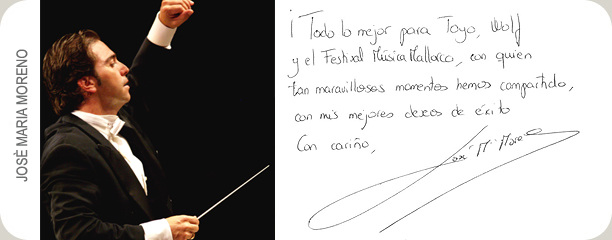 JOSÈ MARIA MORENO
¡Todo lo mejor para Toyo, Wolf
y el Festival Música Mallorca, con quien
tan maravillosos momentos hemos compartido,
con mis mejores deseos de éxito
Con cariño,
José Mª Moreno